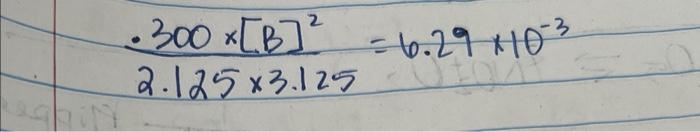 .300 × [B]² / 2.125 × 3.125 = 6.29 × 10⁻³